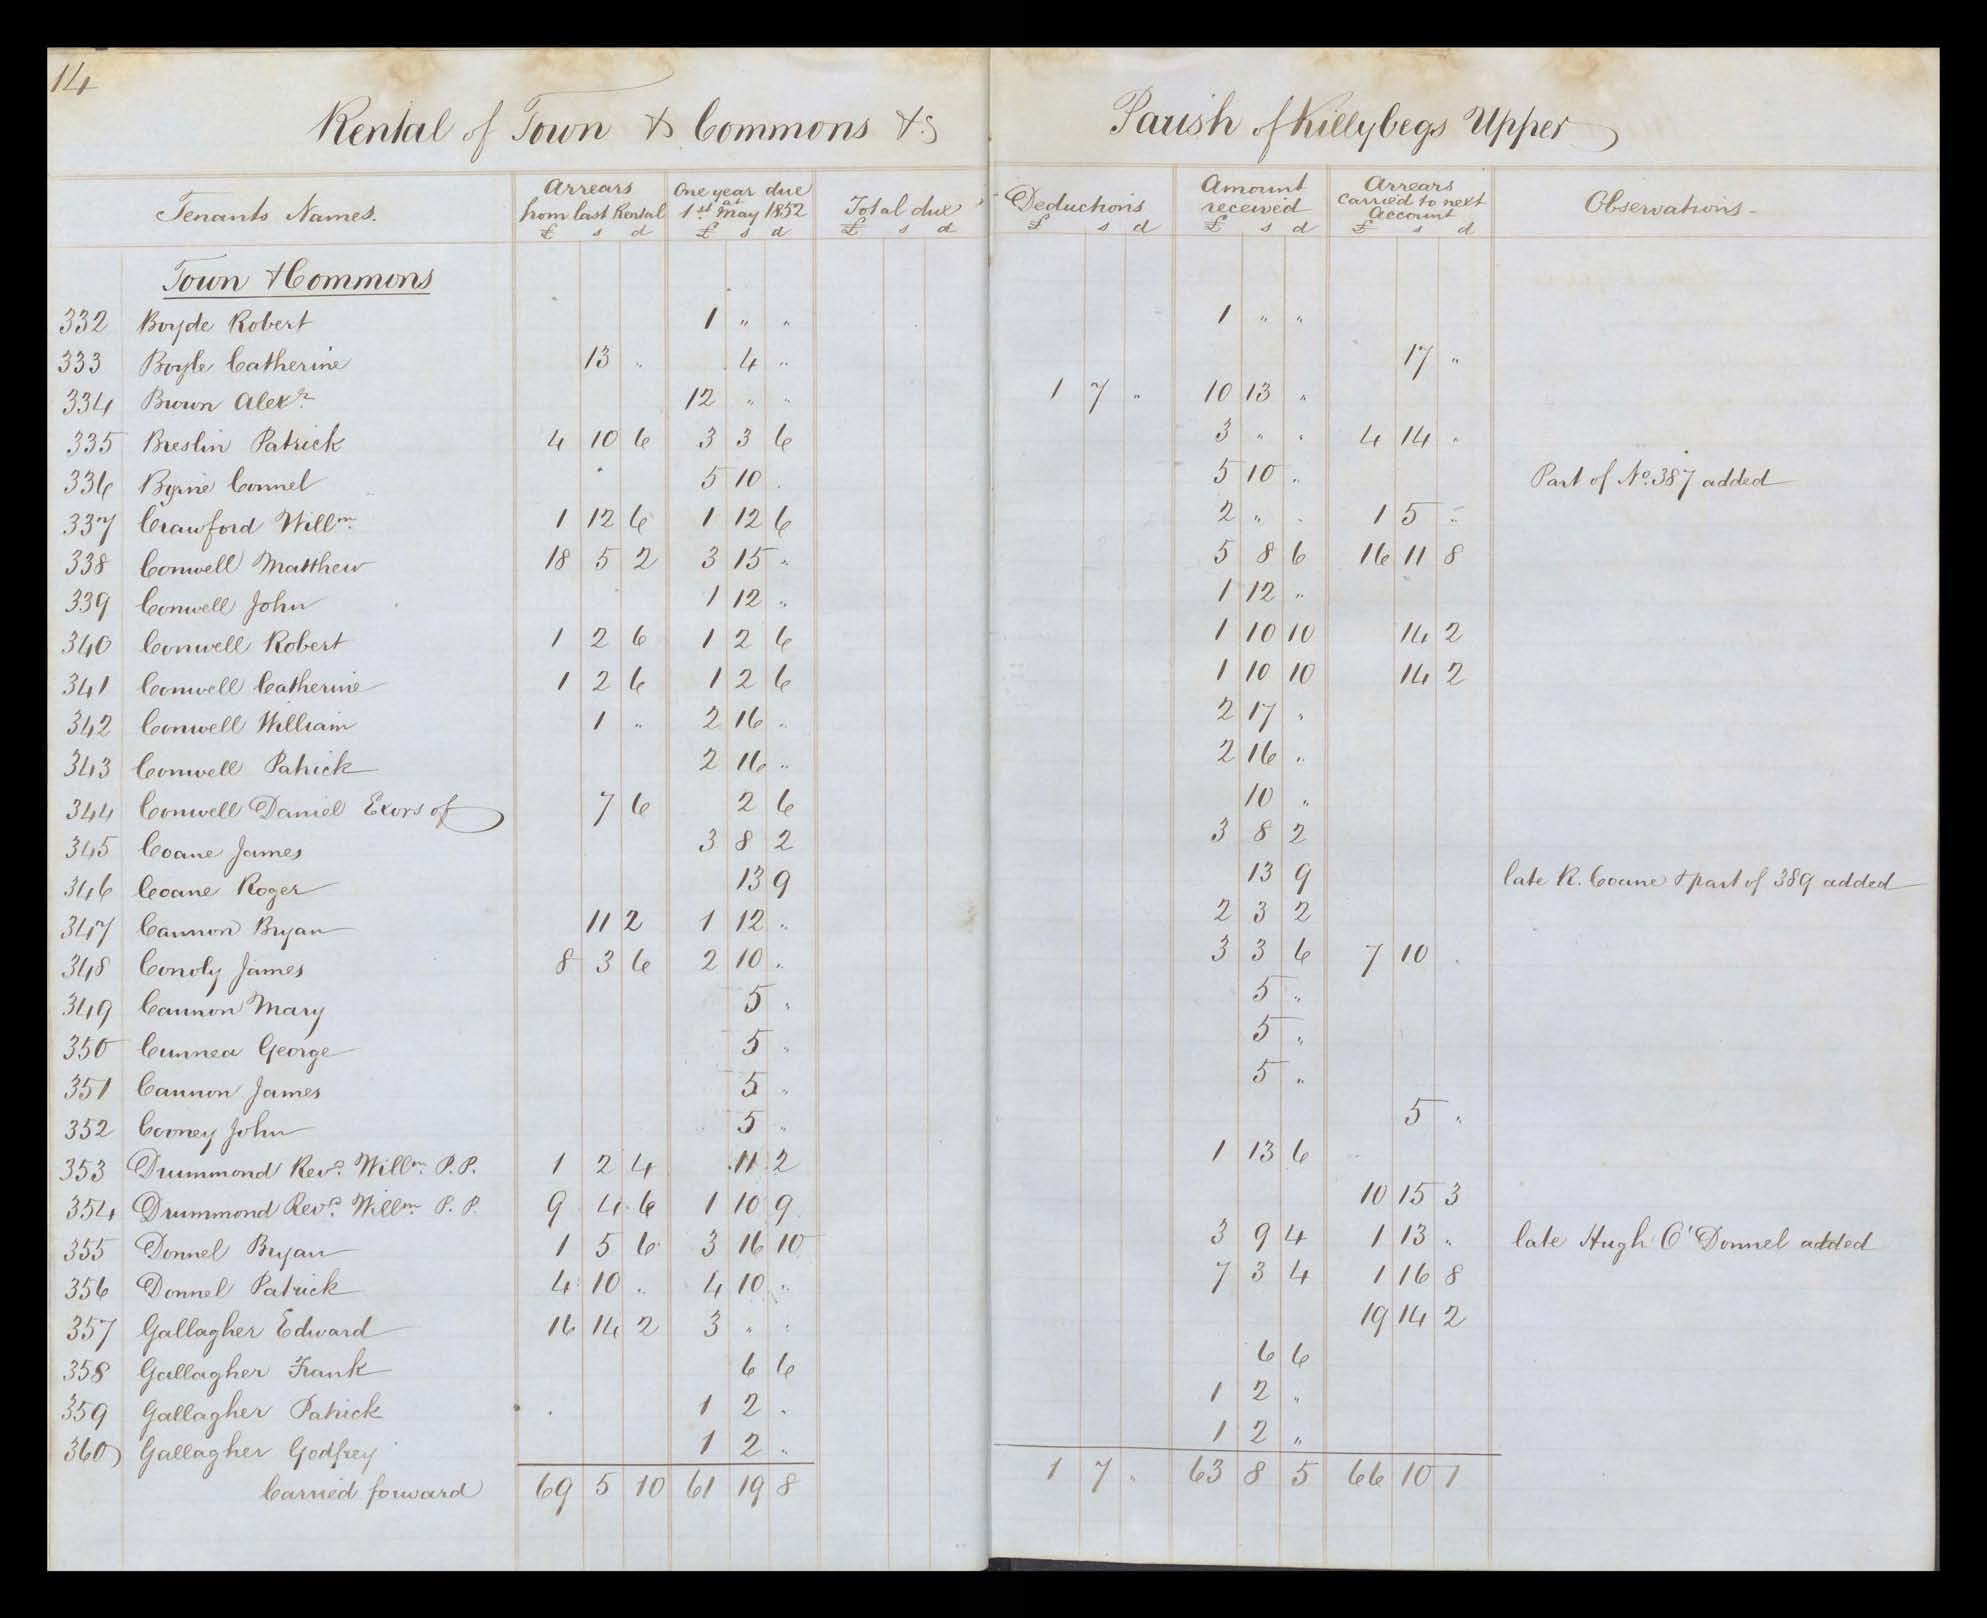 14
Rental of Town & Commons &c Parish of Killybegs Upper
Tenants Names. Arrears from last Rental £ s d One year due at 1st May 1852 £ s d Total due £ s d Deductions £ s d Amount received £ s d Arrears carried to next Account £ s d Observations
Town & Commons
332 Boyde Robert 1 " " 1 " "
333 Boyle Catherine 13 " 4 " 17 "
334 Brown Alexr 12 " " 1 7 " 10 13 "
335 Breslin Patrick 4 10 6 3 3 6 3 " " 4 14 "
336 Byrne Connel 5 10 " 5 10 " Part of No. 387 added
337 Crawford Willm 1 12 6 1 12 6 2 " " 1 5 "
338 Conwell Matthew 18 5 2 3 15 " 5 8 6 16 11 8
339 Conwell John 1 12 " 1 12 "
340 Conwell Robert 1 2 6 1 2 6 1 10 10 14 2
341 Conwell Catherine 1 2 6 1 2 6 1 10 10 14 2
342 Conwell William 1 " 2 16 " 2 17 "
343 Conwell Patrick 2 16 " 2 16 "
344 Conwell Daniel Exors of 7 6 2 6 10 "
345 Coane James 3 8 2 3 8 2
346 Coane Roger 13 9 13 9 late R. Coane & part of 389 added
347 Cannon Bryan 11 2 1 12 " 2 3 2
348 Conoly James 8 3 6 2 10 " 3 3 6 7 10 "
349 Cannon Mary 5 " 5 "
350 Cunnea George 5 " 5 "
351 Cannon James 5 " 5 "
352 Cooney John 5 " 5 "
353 Drummond Revd. Willm. P.P. 1 2 4 11 2 1 13 6
354 Drummond Revd. Willm. P.P. 9 4 6 1 10 9 10 15 3
355 Donnel Bryan 1 5 6 3 16 10 3 9 4 1 13 " late Hugh O'Donnel added
356 Donnel Patrick 4 10 " 4 10 " 7 3 4 1 16 8
357 Gallagher Edward 16 14 2 3 " " 19 14 2
358 Gallagher Frank 6 6 6 6
359 Gallagher Patrick 1 2 " 1 2 "
360 Gallagher Godfrey 1 2 " 1 2 "
Carried forward 69 5 10 61 19 8 1 7 " 63 8 5 66 10 1